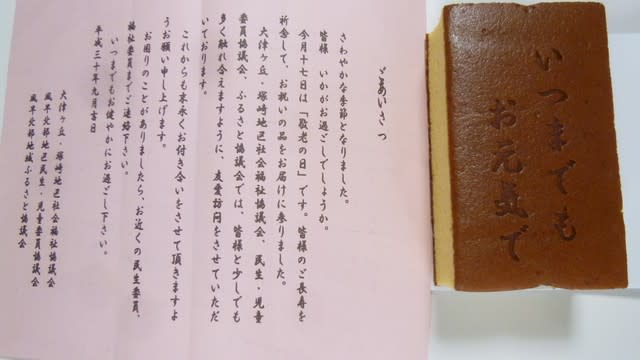 ごあいさつ
さわやかな季節となりました。
皆様 いかがお過ごしでしょうか。
今月十七日は「敬老の日」です。皆様のご長寿を
祈念して、お祝いの品をお届けに参りました。
大津ヶ丘・塚崎地区社会福祉協議会、民生・児童
委員協議会、ふるさと協議会では、皆様と少しでも
多く触れ合えますように、友愛訪問をさせていただ
いております。
これからも末永くお付き合いをさせて頂きますよ
うお願い申し上げます。
お困りのことがありましたら、お近くの民生委員、
福祉委員までご連絡下さい。
いつまでもお健やかにお過ごし下さい。
平成三十年九月吉日
大津ヶ丘・塚崎地区社会福祉協議会
風早北部地区民生・児童委員協議会
風早北部地域ふるさと協議会
いつまでも
お元気で